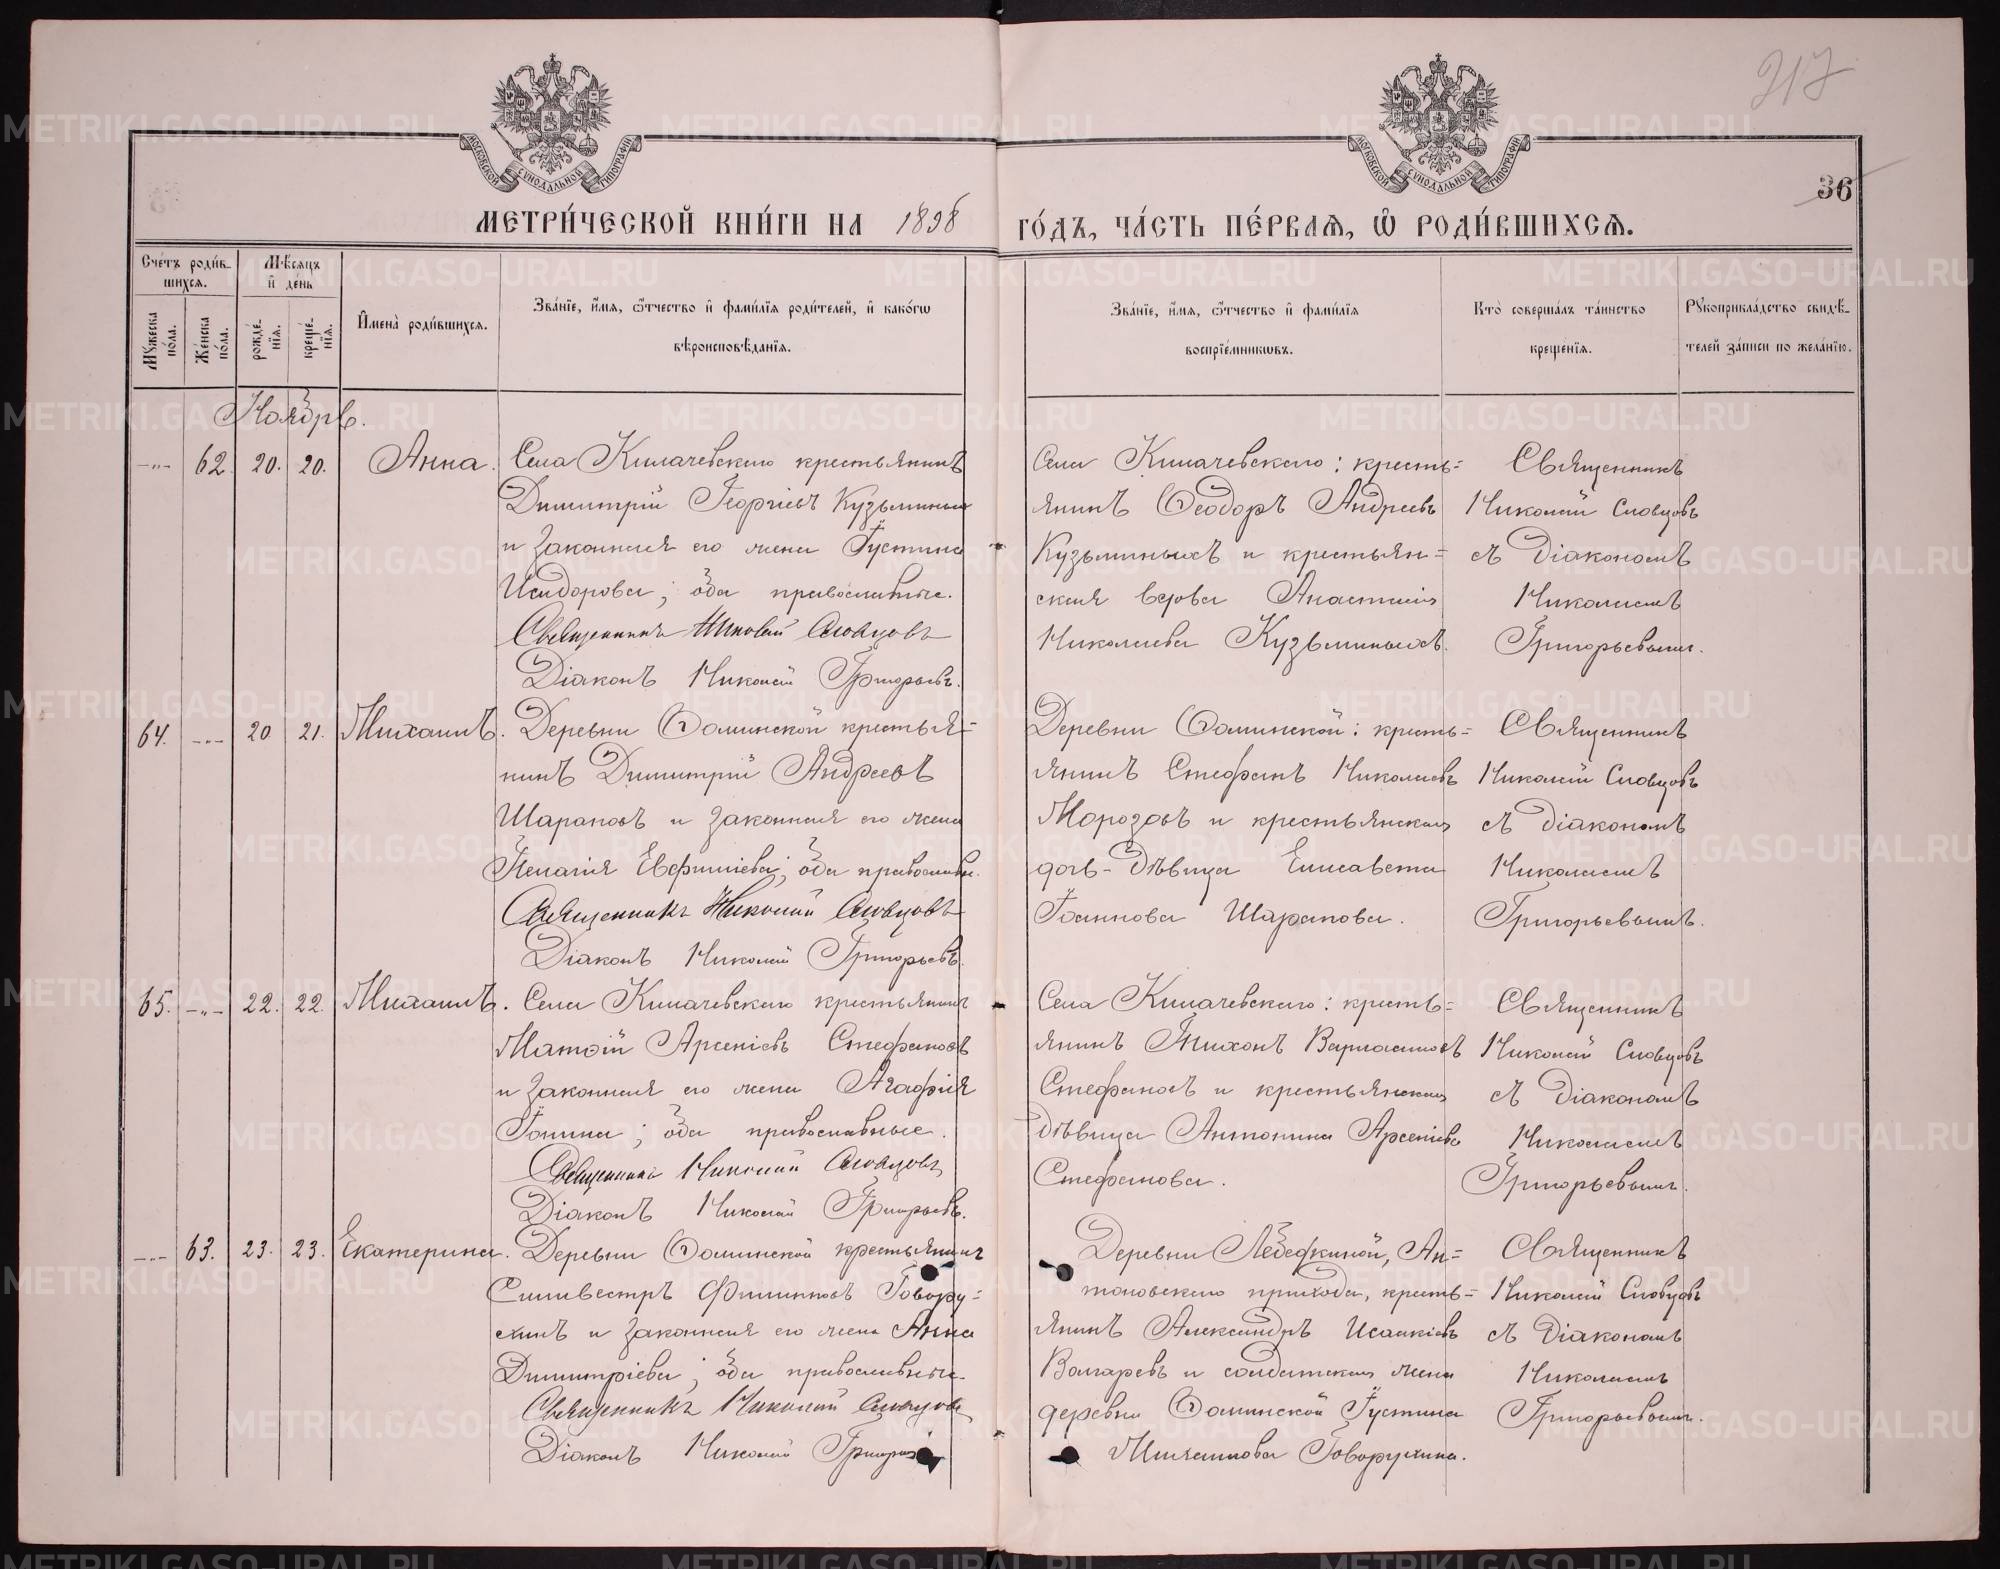 217
36
МОСКОВСКОЙ СѴНОДАЛЬНОЙ ТИПОГРАФІИ
МОСКОВСКОЙ СѴНОДАЛЬНОЙ ТИПОГРАФІИ
МЕТРИ́ЧЕСКОЙ КНИ́ГИ НА 1898 ГО́ДЪ, ЧА́СТЬ ПЕ́РВАѦ, Ѡ҆ РОДИ́ВШИХСѦ.
Сче́тъ роди́в-
шихсѧ.
Мꙋ́жеска по́ла.
Же́нска по́ла.
Мѣ́сѧцъ
и҆ де́нь
рожде́нїѧ.
креще́нїѧ.
И҆мена̀ роди́вшихсѧ.
Зва́нїе, и҆́мѧ, ѻ҆́тчество и҆ фамі́лїѧ роди́телей, и҆ како́гѡ
вѣроисповѣ́данїѧ.
Зва́нїе, и҆́мѧ, ѻ҆́тчество и҆ фамі́лїѧ
воспрїе́мникѡвъ.
Кто̀ соверша́лъ та́инство
креще́нїѧ.
Рꙋкоприкла́дство свидѣ́-
телей за́писи по жела́нїю.
Ноябрь.
-"- 62. 20. 20. Анна.
Села Килачевскаго крестьянинъ
Димитрій Георгіевъ Кузьминыхъ
и законная его жена Іустина
Исидорова; оба православные.
Священникъ Николай Словцовъ
Діаконъ Николай Григорьевъ.
Села Килачевскаго: кресть=
янинъ Ѳеодоръ Андреевъ
Кузьминыхъ и крестьян=
ская вдова Анастасія
Николаева Кузьминыхъ.
Священникъ
Николай Словцовъ
съ Діакономъ
Николаемъ
Григорьевымъ.
64. -"- 20. 21. Михаилъ.
Деревни Ѳоминской крестья=
нинъ Димитрій Андреевъ
Шараповъ и законная его жена
Пелагія Евфиміева; оба православны.
Священникъ Николай Словцовъ
Діаконъ Николай Григорьевъ.
Деревни Ѳоминской: кресть=
янинъ Стефанъ Николаевъ
Морозовъ и крестьянская
дочь-дѣвица Елисавета
Іоаннова Шарапова.
Священникъ
Николай Словцовъ
съ Діакономъ
Николаемъ
Григорьевымъ.
65. -"- 22. 22. Михаилъ.
Села Килачевскаго крестьянинъ
Матѳій Арсеніевъ Стефановъ
и законная его жена Агафія
Іонина; оба православные.
Священникъ Николай Словцовъ
Діаконъ Николай Григорьевъ.
Села Килачевскаго: кресть=
янинъ Тихонъ Варлаамовъ
Стефановъ и крестьянская
дѣвица Антонина Арсеніева
Стефанова.
Священникъ
Николай Словцовъ
съ Діакономъ
Николаемъ
Григорьевымъ.
-"- 63. 23. 23. Екатерина.
Деревни Ѳоминской крестьянинъ
Силивестръ Филипповъ Говору=
хинъ и законная его жена Анна
Димитріева; оба православные.
Священникъ Николай Словцовъ
Діаконъ Николай
Деревни Лебедкиной, Ан=
тоновскаго прихода, кресть=
янинъ Александръ Исаакіевъ
Болгаревъ и солдатская жена
деревни Ѳоминской Іустина
Говорухина.
Священникъ
Николай Словцовъ
съ Діакономъ
Николаемъ
Григорьевымъ.
METRIKI.GASO-URAL.RU